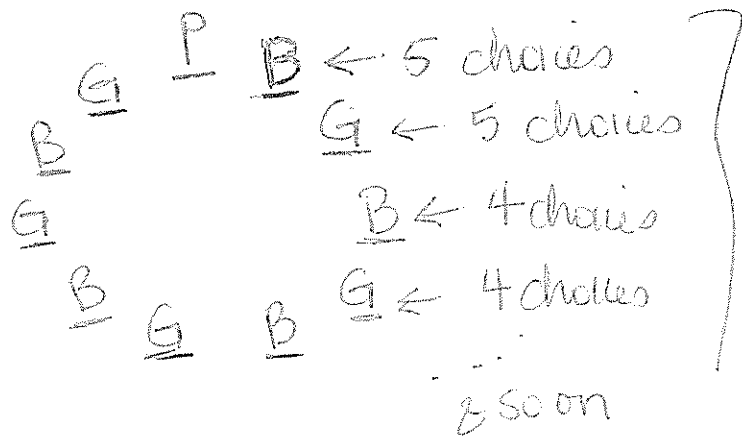 P
G B ← 5 choices
B G ← 5 choices
G B ← 4 choices
B G ← 4 choices
G B
. . . .
& so on